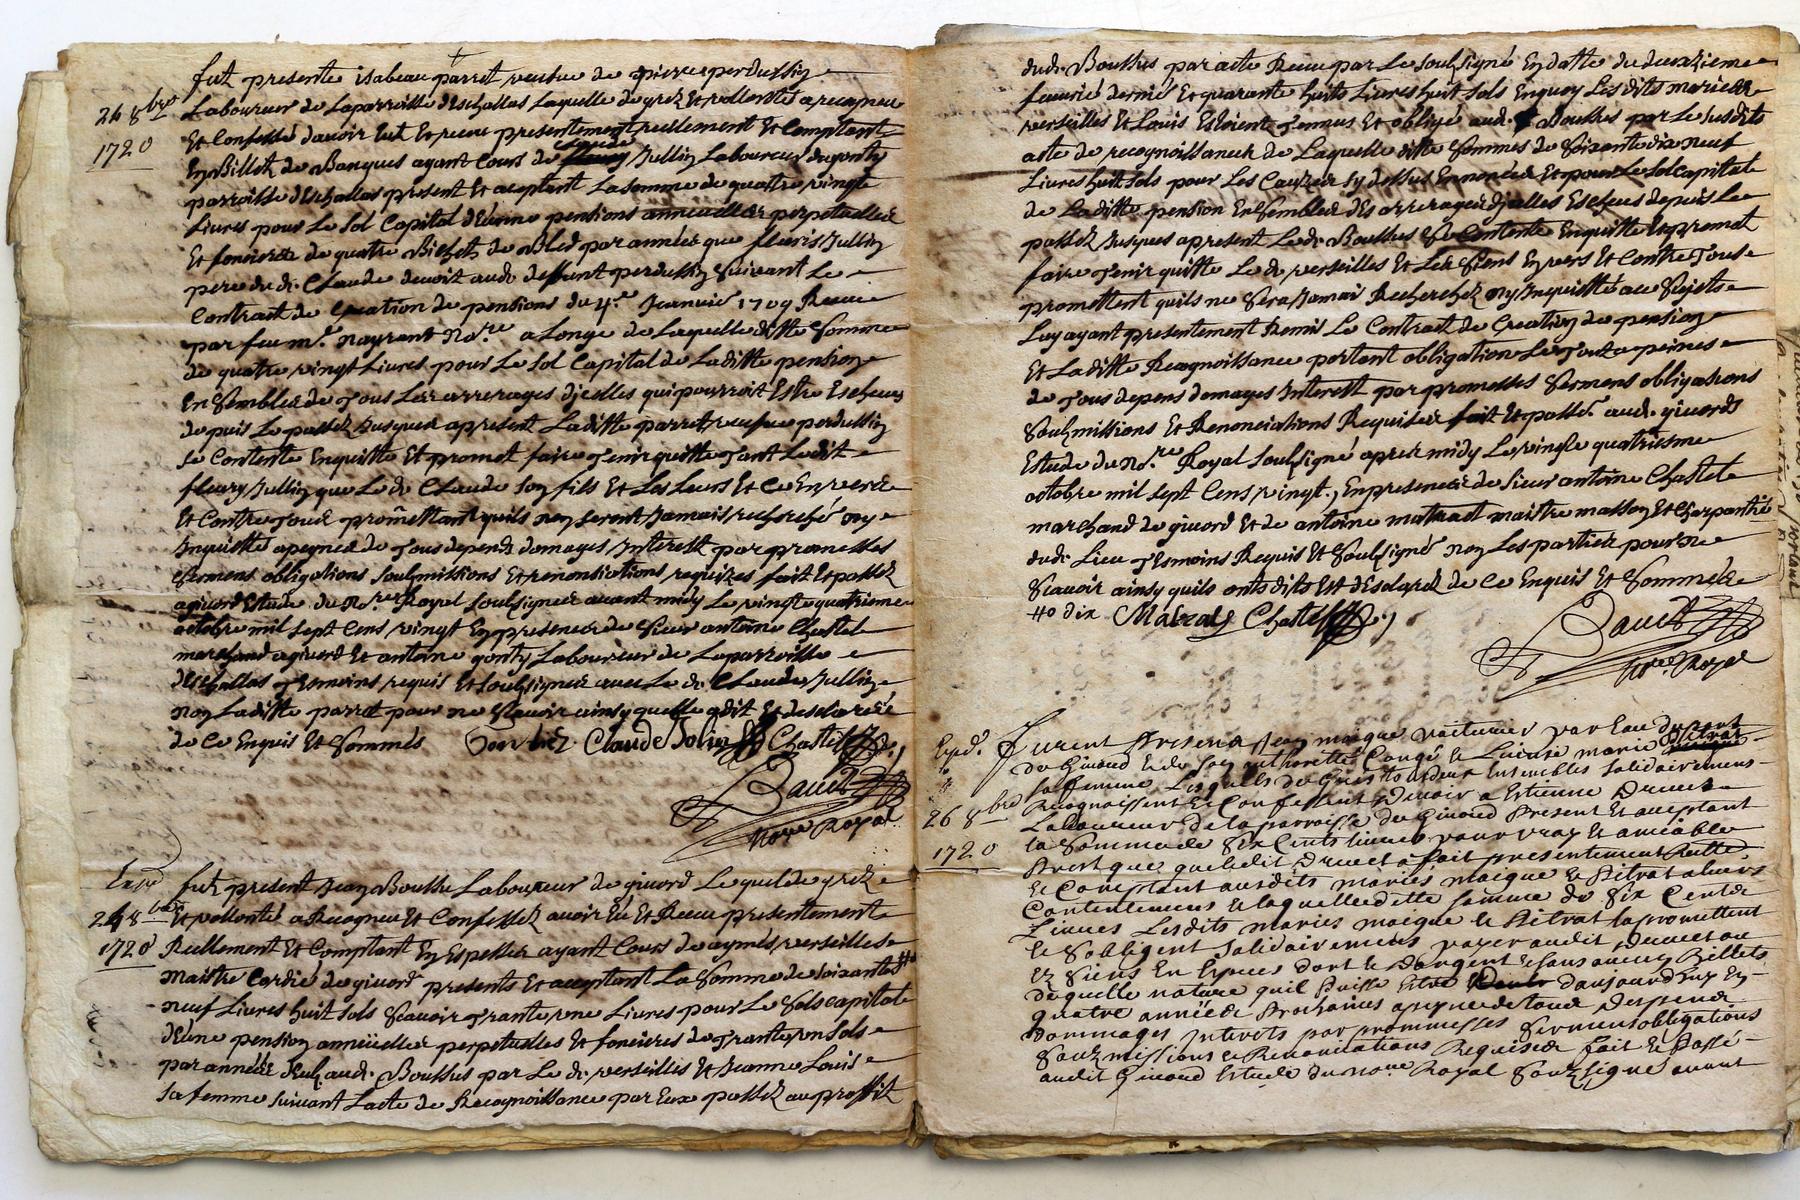 fut presente isabeau parret veufve de pierre perdussin
26 8bre
1720
Laboureur de Laparroisse deschallas Laquelle de grez Et vollonté a recogneu
Et Confessé davoir Eut Et receu presentement reellement Et Comptant
En Billet de Banques ayant Cours de Claude Jullin Laboureur dugonty
parroisse deschallas present Et aceptant La somme de quatre vingt
Livres pour Le sol Capital dEunne pensions annuelles perpetuelles
Et foncieres de quatre Bichets de Bled par années que fleuris Jullin
pere dudt. Claude devoit audt. deffunt perdussin Suivant Le
Contract de Creation de pensions du 4e. Jeanvier 1709 Receu
par feu me. nayrant Nore. a Longe de Laquelle ditte Somme
de quatre vingt Livres pour Le sol Capital de Laditte pension
En Semblede Tous Les arrerages djcelles qui pourroit Estre Escheus
de puis Le passé Jusques apresent Laditte parret veufve perdussin
se Contente Enquitte Et promet faire Tenir quitte Tant Ledit
fleury Jullin que Le dt. Claude son fils Et Les Leurs Et Ce Envers
Et Contre Tous promettant quils non seront Jamais recherché ny
Inquietté apeynes de Tous depends domages Interest par promesses
Sermens obligations Soubmissions Et renonsiations requizes fait Et passé
agivord Estude du Nore. Royal soubsigner avant midy Le vingt quatrieme
octobre mil sept Cens vingt En presence de Sieur antoine Chastel
marchand agivord Et antoine gonty Laboureur de Laparroisse
deschallas Tesmoins requis Et soubsigner avec Le dt. Claude Jullin
non Laditte parret pour ne Sçavoir ainsy quelle a dit Et desclarée
de Ce Enquis Et Sommés Claude Jolin Chastel
Nore Royal
fut present Jean Bouthe Laboureur de givord Lequel de grez
24 8bre
1720
Et vollonté a Recogneu Et Confessez avoir Eu Et Receu presentement
Reellement Et Comptant En Espesses ayant Cours de aymés verseilles
maistre Cordié de givord presents Et aceptant La Somme de soixante
neuf Livres huit sols Scavoir Trante une Livres pour Le Sols capital
dEune pension annuelles perpetuelles Et foncieres de Trante un sols
par années deub audt. Bouthes par Le dt. verseilles Et Jeanne Louis
sa femme suivant Lacte de Recognoissance par Eux passé au proffit
dudt. Bouthes par acte Receu par Le soubsigné En datte du douzieme
feuvrié dernié Et quarante huits Livres huit sols Enquoy Lesdits mariés
verseilles Et Louis Estoient Tennus Et obligé audt. Bouthes par Le susdits
acte de recognoissance de Laquelle ditte Sommes de Soixante dix neuf
Livres huit sols pour Les Causes sy dessus Ennoncés Et pour Le sol capital
de Laditte pension En Sembles des arrerages djcelles Escheus depuis Le
passé Jusques apresent Le dt. Bouthes Se Contente Enquitte Et promet
faire Tenir quitte Le dt. verseilles Et Les Siens Envers Et Contre Tous
promettent quils ne Sera Jamais Recherchez ny Inquietté ace Sujets
Luy ayant presentement Remis Le Contract de Creation de pension
Et Laditte Recognoissance portant obligation Le Tout a peines
de Tous depens domages Interest par promesses Sermens obligations
Soubmissions Et Renonciations Requises fait Et passé audt. givords
Estude du Nore. Royal Soubsigné apres midy Le vingt quatriesme
octobre mil sept Cens vingt, En presence de sieur antoine Chastel
marchand de givord Et de antoine matrat maistre masson Et Charpantié
dudt. Lieu Tesmoins Requis Et Soubsigné non Les parties pour ne
Scavoir ainsy quils onts dits Est desclarés de Ce Enquis Et Sommés
Chastel
Nore Royal
Exped.
26 8bre
1720
Furent Presens Jean macque voiturier par Eau du port
de Givord Et de Son authorité Congé Et Licence marie Pitrat
sa femme Lesquels de Gres tous deux Ensembles Solidairement
Recognoissent Et Confessent Devoir a Estienne Drevet
Laboureur de la parroisse de Givord Present Et aceptant
la Somme de Six Cents Livres pour vray Et amiable
Prest que quel dit Drevet a fait presentement Reelle
Et Comptant ausdits mariés macque Et Pitrat aleurs
Contentement Et laquelle ditte somme de Six Cents
Livres Lesdits mariés macque Et Pitrat La promettent
Et Sobligent Solidairement payer audit Drevet ou
Es Siens En Especes dort Et Dargent Et Sans aucun Billets
de quelle nature quil Puisse Estre daujourdhuy En
quatre années Prochaines apeyne de tous Despens
Dommages Interets par prommesses Sermens obligations
Soubmissions Et Renonciations Requises Fait Et Passé
audit Givord Estude du nore Royal Soubsigné avant